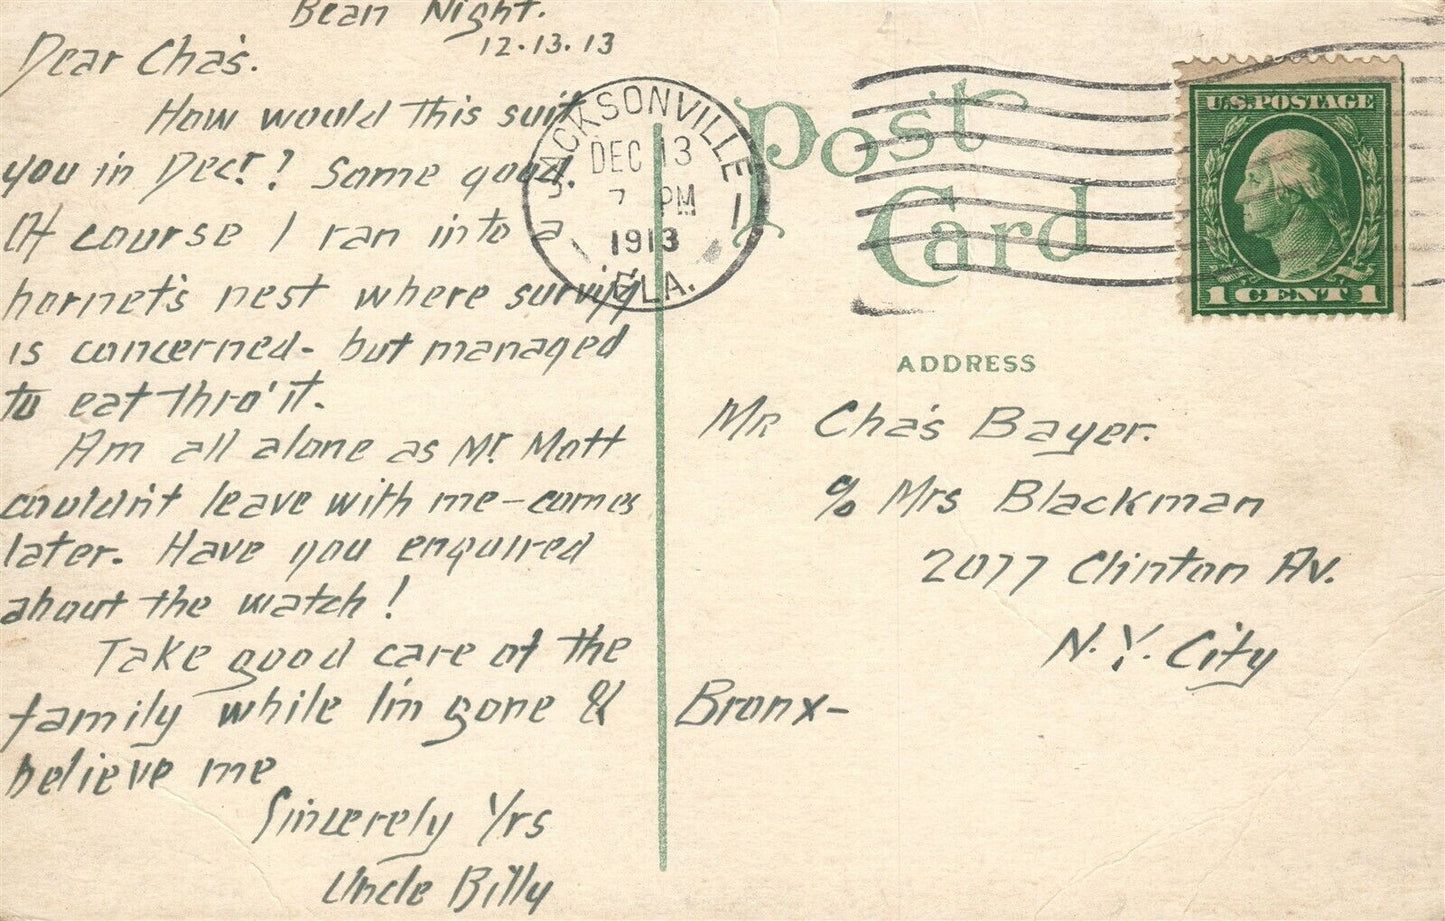 Bean Night.
12.13.13
Dear Cha's.
How would this suit
you in Dec't? Some good.
Of course I ran into a
hornet's nest where survey
is concerned - but managed
to eat thro' it.
Am all alone as Mr. Mott
couldn't leave with me - comes
later. Have you enquired
about the watch!
Take good care of the
family while I'm gone &
believe me
Sincerely Yrs
Uncle Billy
JACKSONVILLE
DEC 13
7 PM
1913
FLA.
Post
Card
U.S. POSTAGE
1 CENT 1
ADDRESS
Mr Cha's Bayer.
c/o Mrs Blackman
2077 Clinton Av.
N.Y. City
Bronx-